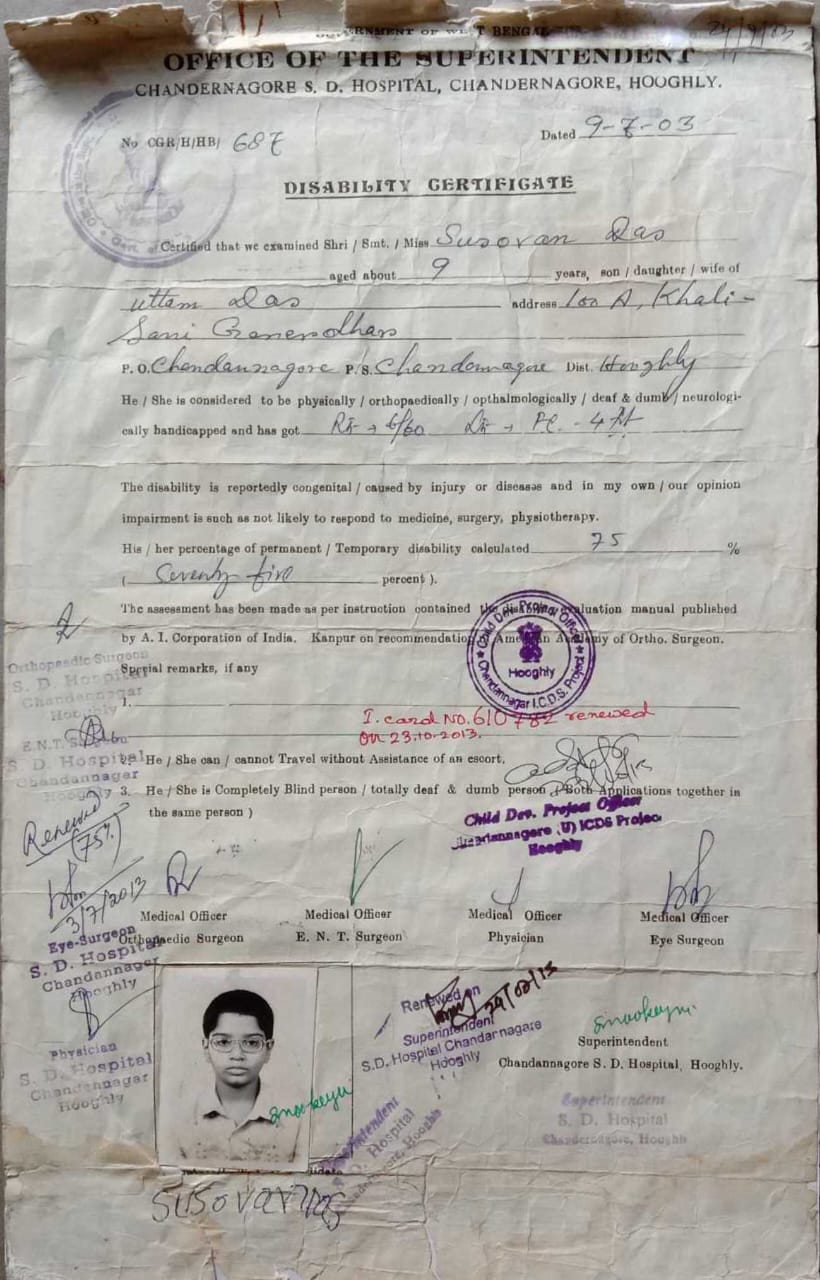 GOVERNMENT OF WEST BENGAL
OFFICE OF THE SUPERINTENDENT
CHANDERNAGORE S. D. HOSPITAL, CHANDERNAGORE, HOOGHLY.
No CGR/H/HB/ 687
Dated 9-7-03
DISABILITY CERTIFICATE
Certified that we examined Shri / Smt. / Miss Susovan Das
aged about 9 years, son / daughter / wife of
Uttam Das address 100 A, Khali-
Sani
P. O. Chandannagore P/S. Chandannagore Dist. Hooghly
He / She is considered to be physically / orthopaedically / opthalmologically / deaf & dumb / neurologi-
cally handicapped and has got Rt → 6/60 Lt → FC - 4 ft
The disability is reportedly congenital / caused by injury or diseases and in my own / our opinion
impairment is such as not likely to respond to medicine, surgery, physiotherapy.
His / her percentage of permanent / Temporary disability calculated 75 %
( Seventy five percent ).
The assessment has been made as per instruction contained the disability evaluation manual published
by A. I. Corporation of India. Kanpur on recommendation of American Academy of Ortho. Surgeon.
Child Dev. Project Officer
Hooghly
Chandannagar I.C.D.S. Project
Orthopaedic Surgeon
S. D. Hospital
Chandannagar
Hooghly
Special remarks, if any
1.
I. card No. 610782 renewed
on 23.10.2013.
E.N.T. Surgeon
S D Hospital
Chandannagar
Hooghly
2. He / She can / cannot Travel without Assistance of an escort,
3. He / She is Completely Blind person / totally deaf & dumb person ( Both Applications together in
the same person )
Child Dev. Project Officer
Chandannagore (U) ICDS Project
Hooghly
Renewed
(75%)
3/7/2013
Eye-Surgeon
S. D. Hospital
Chandannager
Hooghly
Medical Officer Medical Officer Medical Officer Medical Officer
Orthopaedic Surgeon E. N. T. Surgeon Physician Eye Surgeon
Physician
S. D. Hospital
Chandannagar
Hooghly
Renewed on
29/02/13
Superintendent
S.D. Hospital Chandarnagare
Hooghly
Superintendent
Chandernagore S. D. Hospital, Hooghly.
Superintendent
S. D. Hospital
Chandernagore, Hooghly
Superintendent
S. D. Hospital
Chandernagore, Hooghly
SUSOVAN DAS